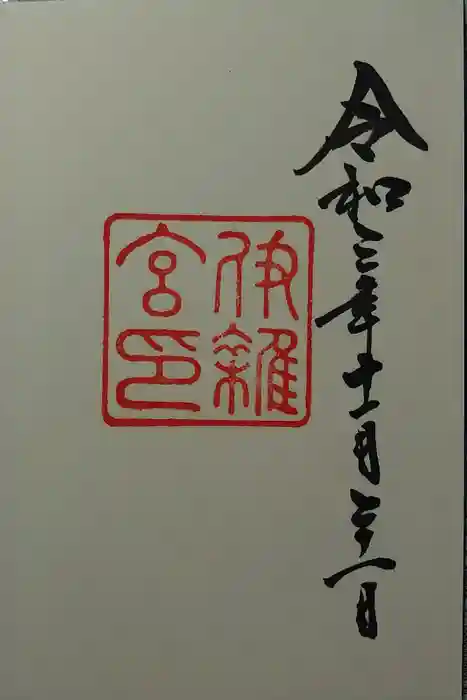 令和二年十一月二十一日
伊雜
宮印